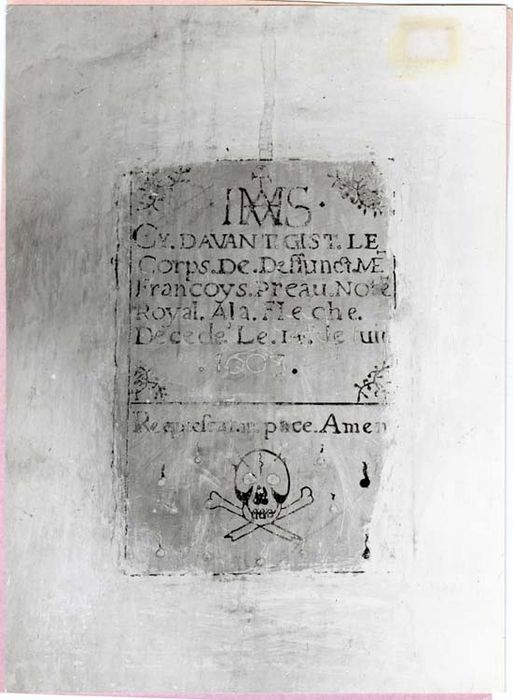 IHS.
CY. DAVANT. GIST. LE
Corps. De. Deffunct. ME
Francoys. Preau. Note
Royal. Ala. Fleche.
Decede. Le. 14. de
Requiescat. in pace. Amen